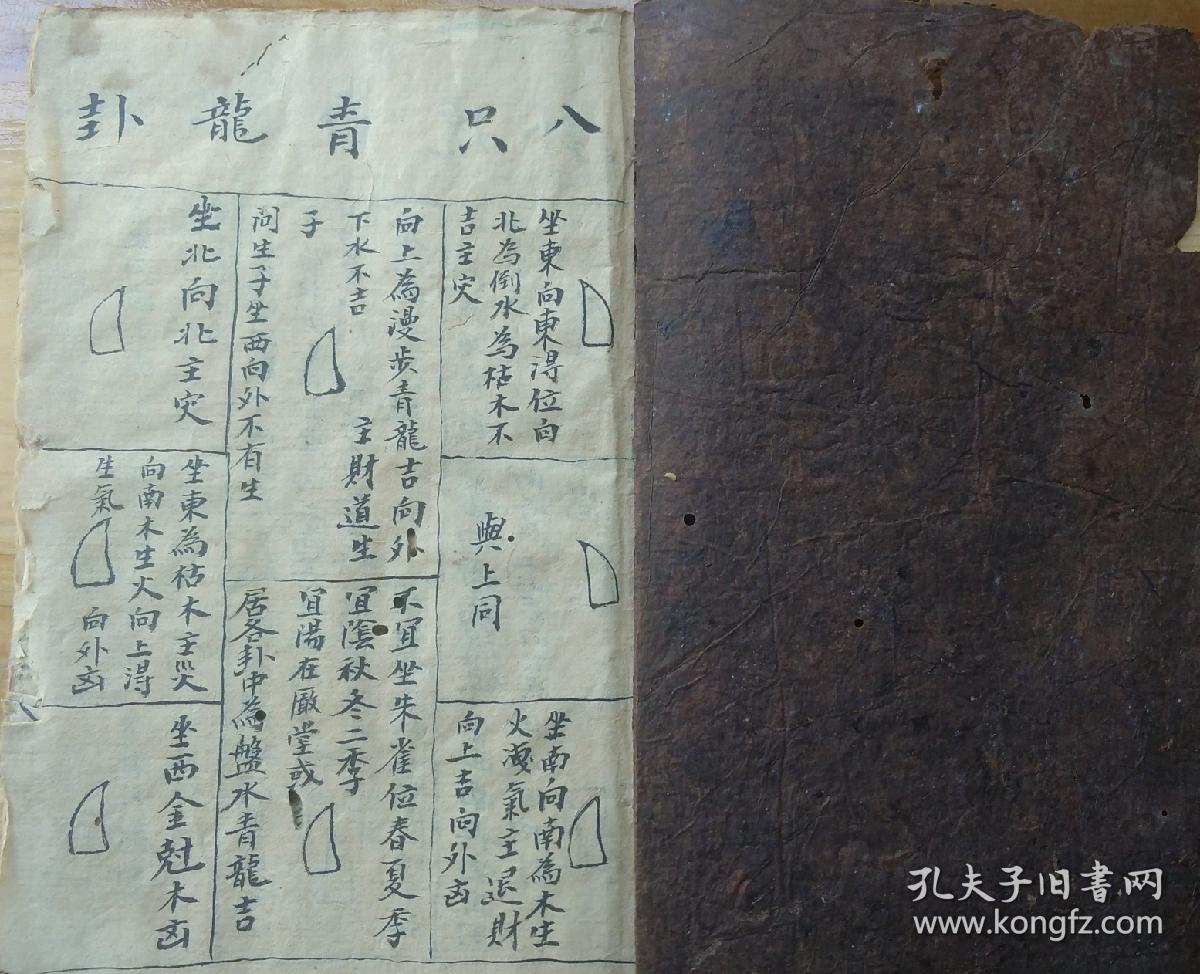 八只青龍卦
坐東向東淂位向
北為倒水為枯木不
吉主灾
與上同
坐南向南為木生
火洩氣主退財
向上吉向外凶
向上為漫步青龍吉向外
下水不吉
主財道生
子
問生子坐西向外不有生
不宜坐朱雀位春夏季
宜陰秋冬二季
宜陽在廠堂或
居各卦中為盤水青龍吉
坐北向北主灾
坐東為枯木主災
向南木生火向上淂
生氣
向外凶
坐西金尅木凶
孔夫子旧書网
www.kongfz.com